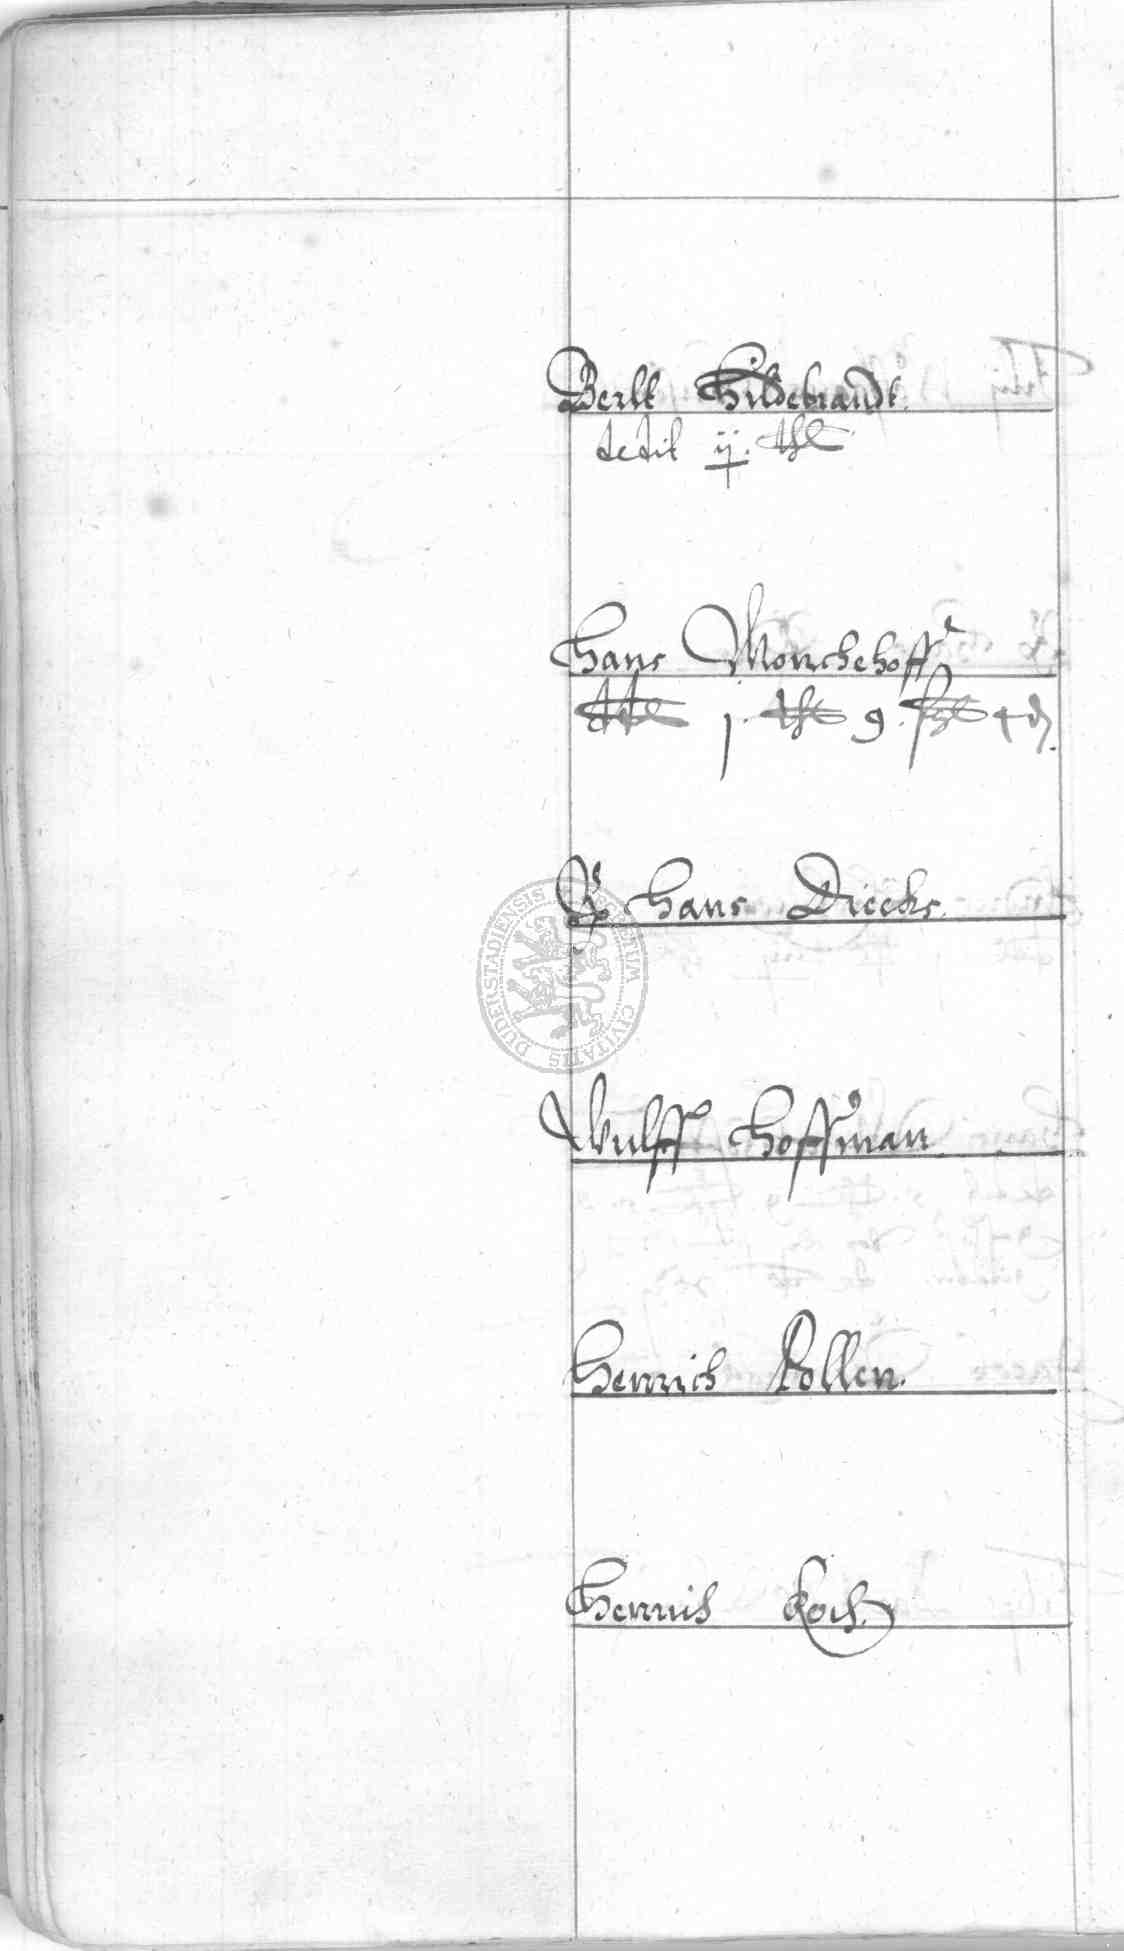 Berlt Hildebrandt.
dedit ij. thl
Hans Monchehoff
j. thl 9.
Hans Diecks.
Wulff Hoffman
Henrich Pollen.
Henrich Koch.
SECRETUM CIVITATIS DUDERSTADIENSIS